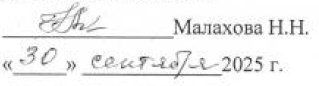 Малахова Н.Н.
«30» сентября 2025 г.